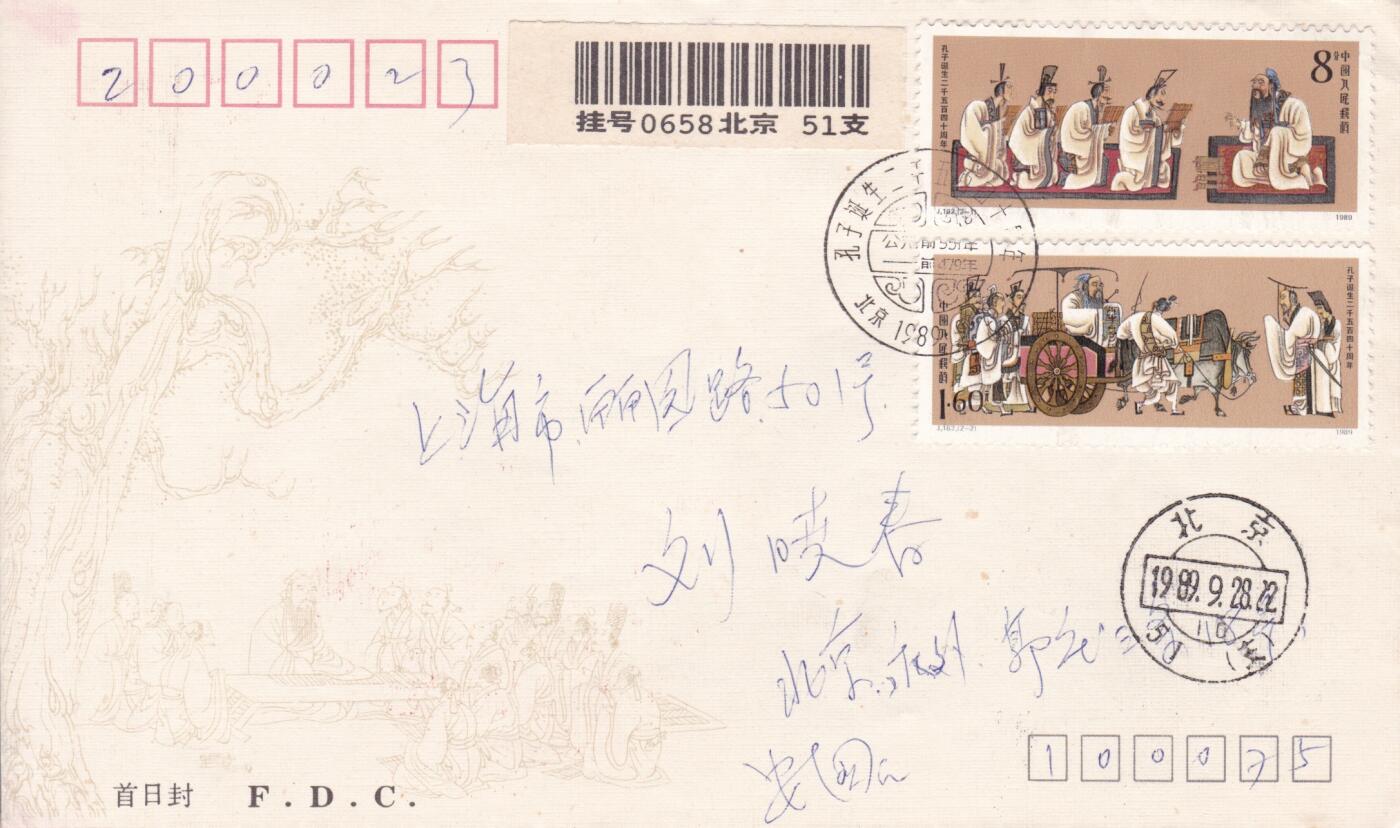 200023
挂号0658北京 51支
8分
中国人民邮政
孔子诞生二千五百四十周年
J.162.(2-1)
1989
孔子诞生二千五百四十周年
公元前551年
前479年
北京 1989
中国人民邮政
孔子诞生二千五百四十周年
1.60
J.162.(2-2)
1989
上海市丽园路501号
刘晓春
北京
1989.9.28.22
51(支)
北京广州
100075
首日封 F.D.C.